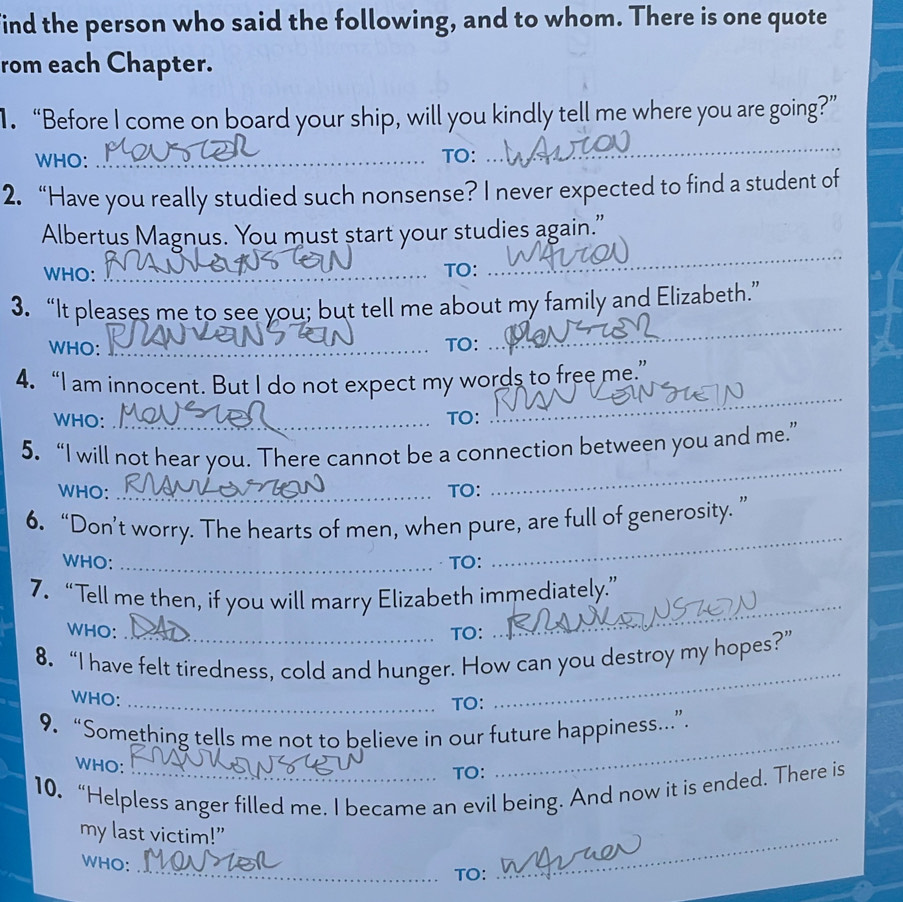 ind the person who said the following, and to whom. There is one quote
rom each Chapter.
1. “Before I come on board your ship, will you kindly tell me where you are going?”
WHO: MONSTER TO: WALTON
2. “Have you really studied such nonsense? I never expected to find a student of
Albertus Magnus. You must start your studies again.”
WHO: FRANKENSTEIN TO: WALTON
3. “It pleases me to see you; but tell me about my family and Elizabeth.”
WHO: FRANKENSTEIN TO: MONSTER
4. “I am innocent. But I do not expect my words to free me.”
WHO: MONSTER TO: FRANKENSTEIN
5. “I will not hear you. There cannot be a connection between you and me.”
WHO: FRANKENSTEIN TO:
6. “Don’t worry. The hearts of men, when pure, are full of generosity. ”
WHO: TO:
7. “Tell me then, if you will marry Elizabeth immediately.”
WHO: DAD TO: FRANKENSTEIN
8. “I have felt tiredness, cold and hunger. How can you destroy my hopes?”
WHO: TO:
9. “Something tells me not to believe in our future happiness...”.
WHO: FRANKENSTEIN TO:
10. “Helpless anger filled me. I became an evil being. And now it is ended. There is
my last victim!”
WHO: MONSTER TO: WALTON